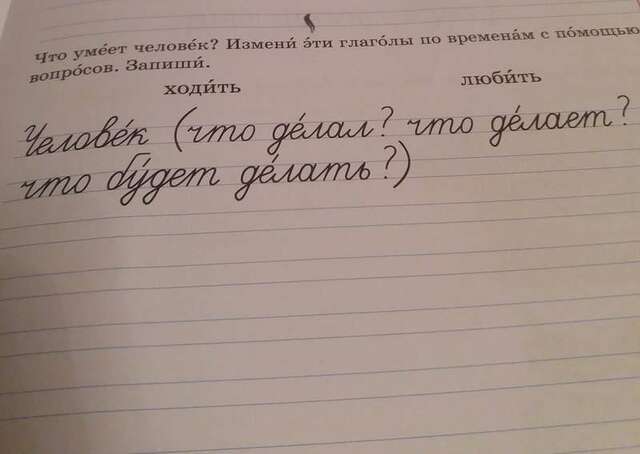 Что уме́ет челове́к? Измени́ э́ти глаго́лы по времена́м с по́мощью
вопро́сов. Запиши́.
ходи́ть люби́ть
Челове́к (что де́лал? что де́лает?
что бу́дет де́лать?)